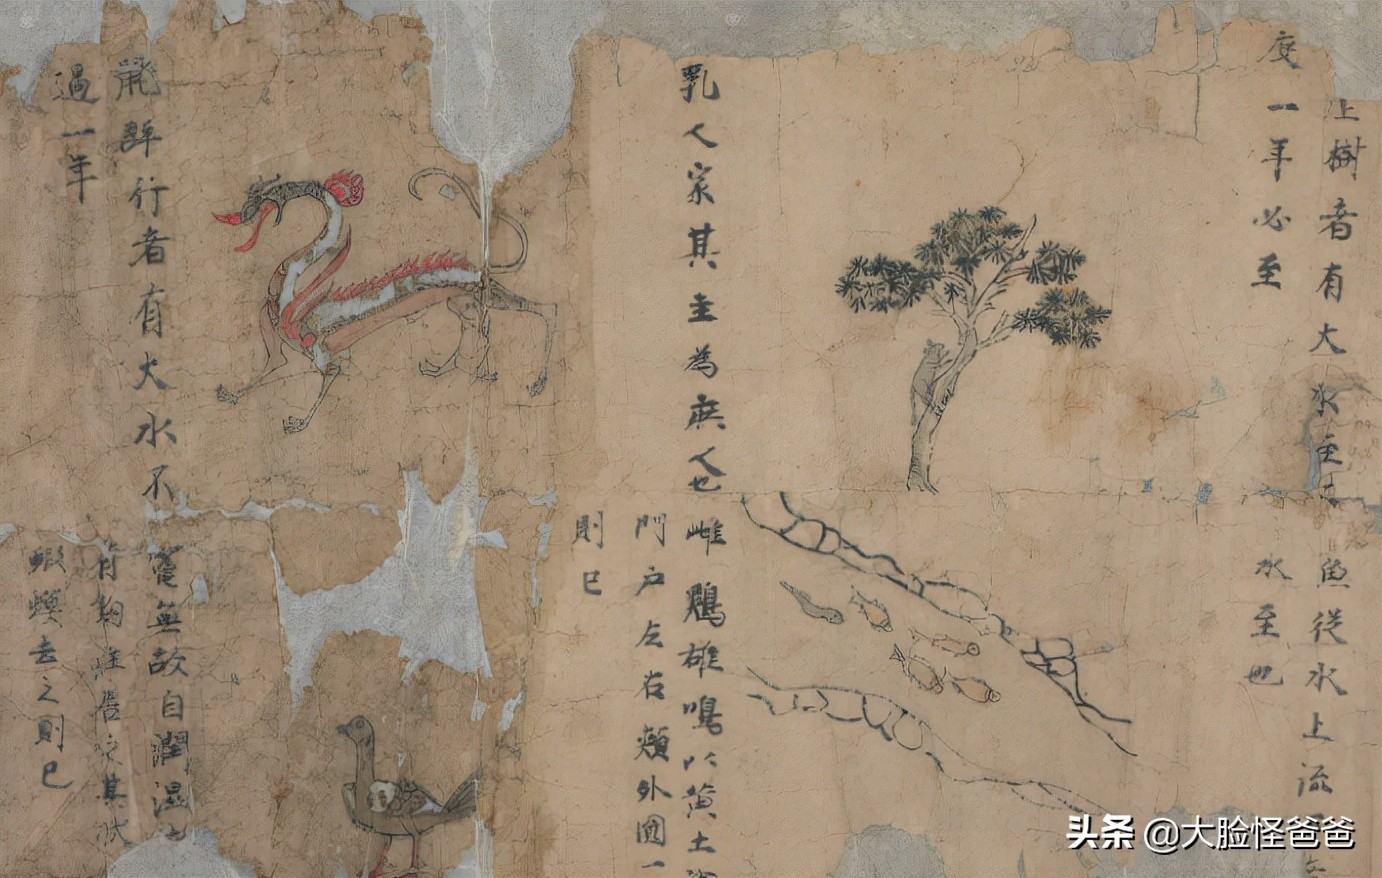 上樹者有大水至
度一年必至
乳人家其主為庶人也
行者有大水不
過一年
魚從水上流
水至也
雌鷄雄鳴以黄土
門户左右頰外圓一
則已
無故自潤濕
之其状
蝦蟆去之則已
头条 @大脸怪爸爸